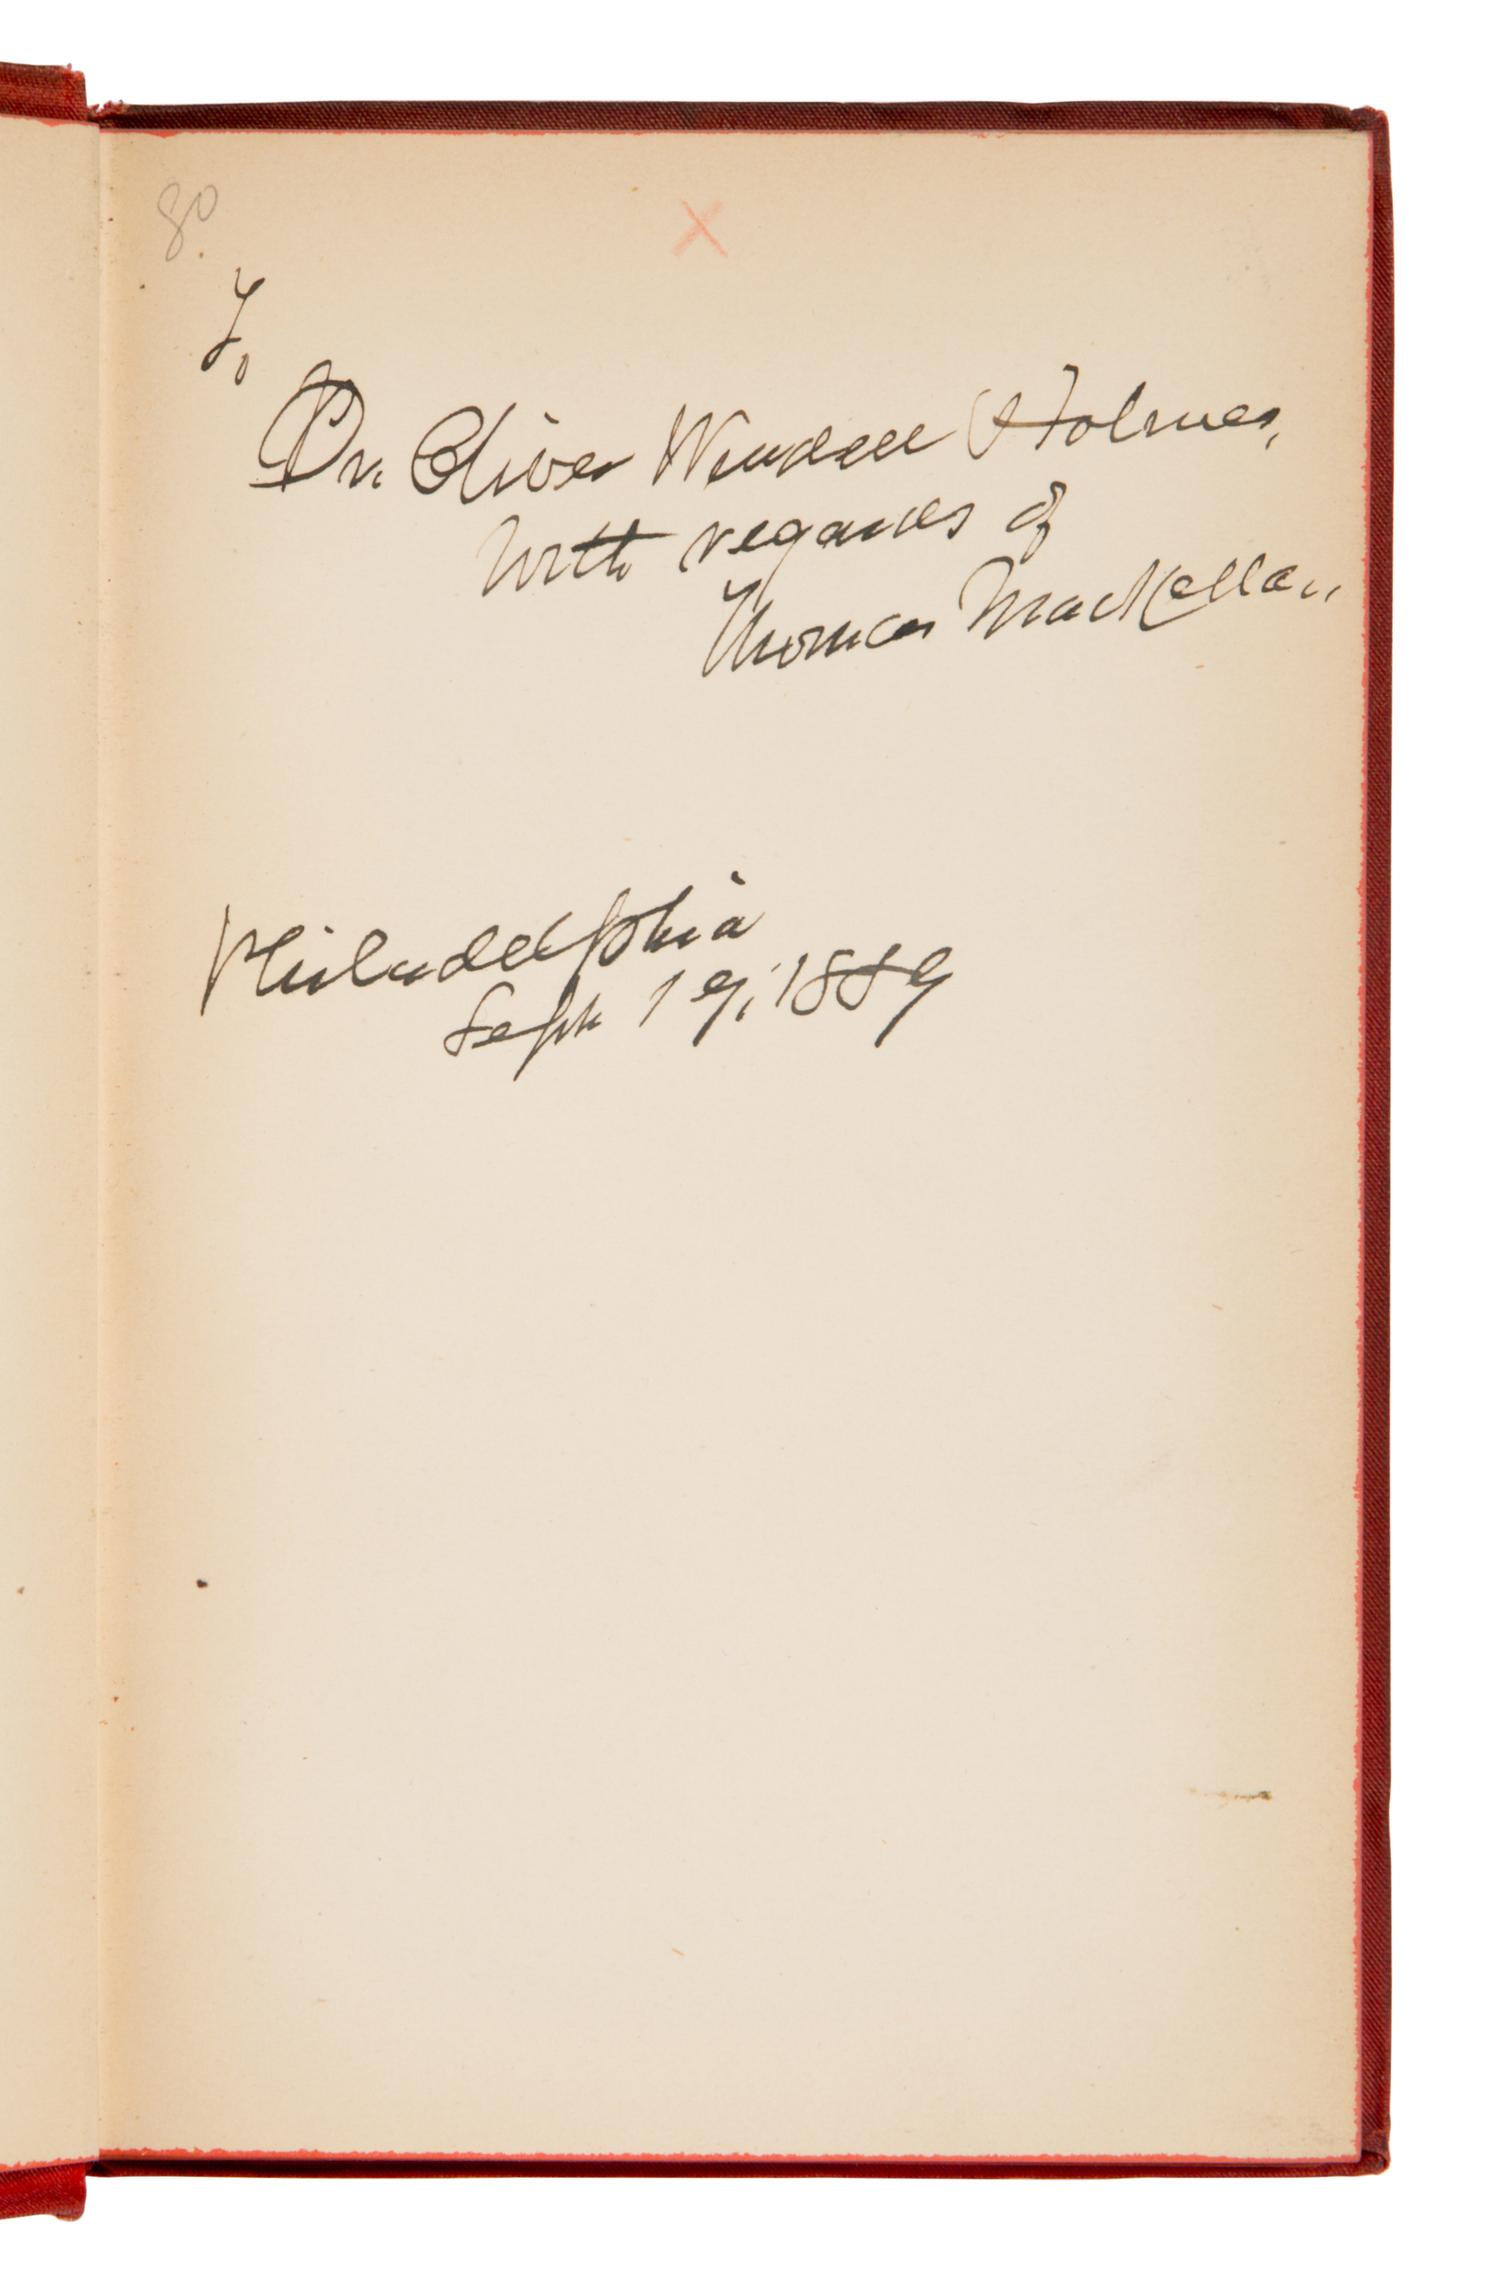 80
X
To
Dr. Oliver Wendell Holmes,
With regards of
Thomas MacKellar.
Philadelphia
Sept. 19, 1889